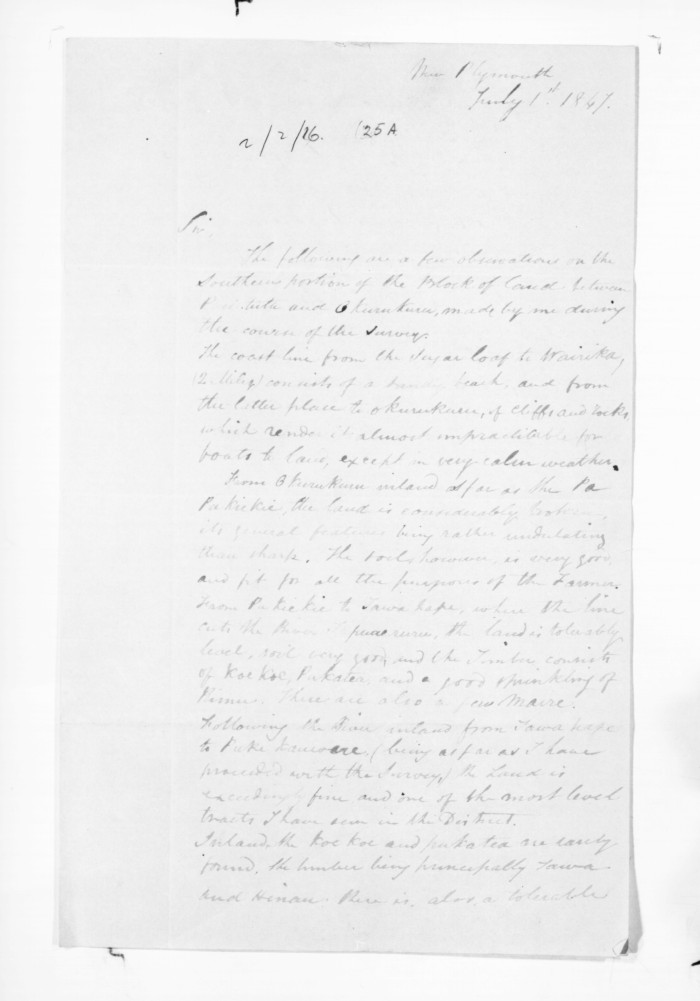 New Plymouth
July 1st. 1847.
2/2/16. (25A
Sir,
The following are a few observations on the
Southern portion of the Block of land between
and Okurukuru, made by me during
the course of the Survey.
The coast line from the Sugar loaf to Wairika,
(2 Miles) consists of a sandy beach, and from
the latter place to Okurukuru, of cliffs and rocks,
which render it almost impractitable for
boats to land, except in very calm weather.
From Okurukuru inland as far as the Pa
Pukiekie, the land is considerably broken,
its general features being rather undulating
than sharp. The soil, however, is very good,
and fit for all the purposes of the Farmer.
From Pukiekie to Tawa hape, where the line
cuts the River, the land is tolerably
level, soil very good, and the Timber consists
of Koe koe, Pukatea, and a good sprinkling of
Rimu. There are also a few Maire.
Following the River inland from Tawa hape
to Puke, (being as far as I have
proceeded with the Survey,) the Land is
exceedingly fine and one of the most level
tracts I have seen in the District.
Inland, the Koe Koe and pukatea are rarely
found, the timber being principally Tawa
and Hinau. There is, also, a tolerable